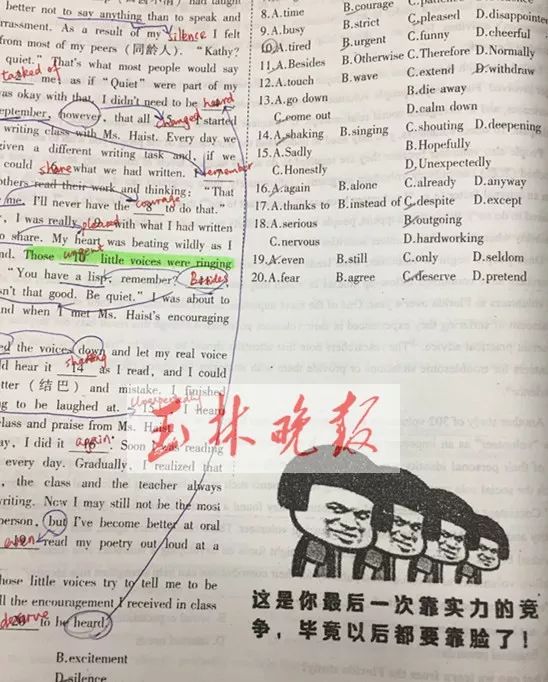 better not to say anything than to speak and
rrassment. As a result of my silence I felt
from most of my peers (同龄人). "Kathy?
quiet." That's what most people would say
tasked of me, as if "Quiet" were part of my
was okay with that. I didn't need to be heard
eptember, however, that all changed started
writing class with Ms. Haist. Every day we
given a different writing task and, if we
could share what we had written. I remember
others read their work and thinking: "That
me. I'll never have the courage to do that."
, I was really pleased with what I had written
to share. My heart was beating wildly as I
nd. Those urgent little voices were ringing
"You have a lisp, remember? Besides
n't that good. Be quiet." I was about to
nd when I met Ms. Haist's encouraging
ed the voices down and let my real voice
ld hear it shaking 14 as I read, and I could
tter (结巴) and mistake. I finished
g to be laughed at. Unexpectedly 15 I heard
lass and praise from Ms. Haist
ay, I did it again. Soon I was reading
every day. Gradually, I realized that
, the class and the teacher always
riting. Now I may still not be the most
person, but I've become better at oral
even read my poetry out loud at a
hose little voices try to tell me to be
ll the encouragement I received in class
deserve 20 to be heard.
B.excitement
D.silence
8.A.time B.courage C.patience D.disappointe
9.A.busy B.strict C.pleased D.cheerful
10.A.tired B.urgent C.funny
11.A.Besides B.Otherwise C.Therefore D.Normally
12.A.touch B.wave C.extend D.withdraw
13.A.go down B.die away
C.come out D.calm down
14.A.shaking B.singing C.shouting D.deepening
15.A.Sadly B.Hopefully
C.Honestly D.Unexpectedly
16.A.again B.alone C.already D.anyway
17.A.thanks to B.instead of C.despite D.except
18.A.serious B.outgoing
C.nervous D.hardworking
19.A.even B.still C.only D.seldom
20.A.fear B.agree C.deserve D.pretend
玉林晚报
这是你最后一次靠实力的竞
争，毕竟以后都要靠脸了！